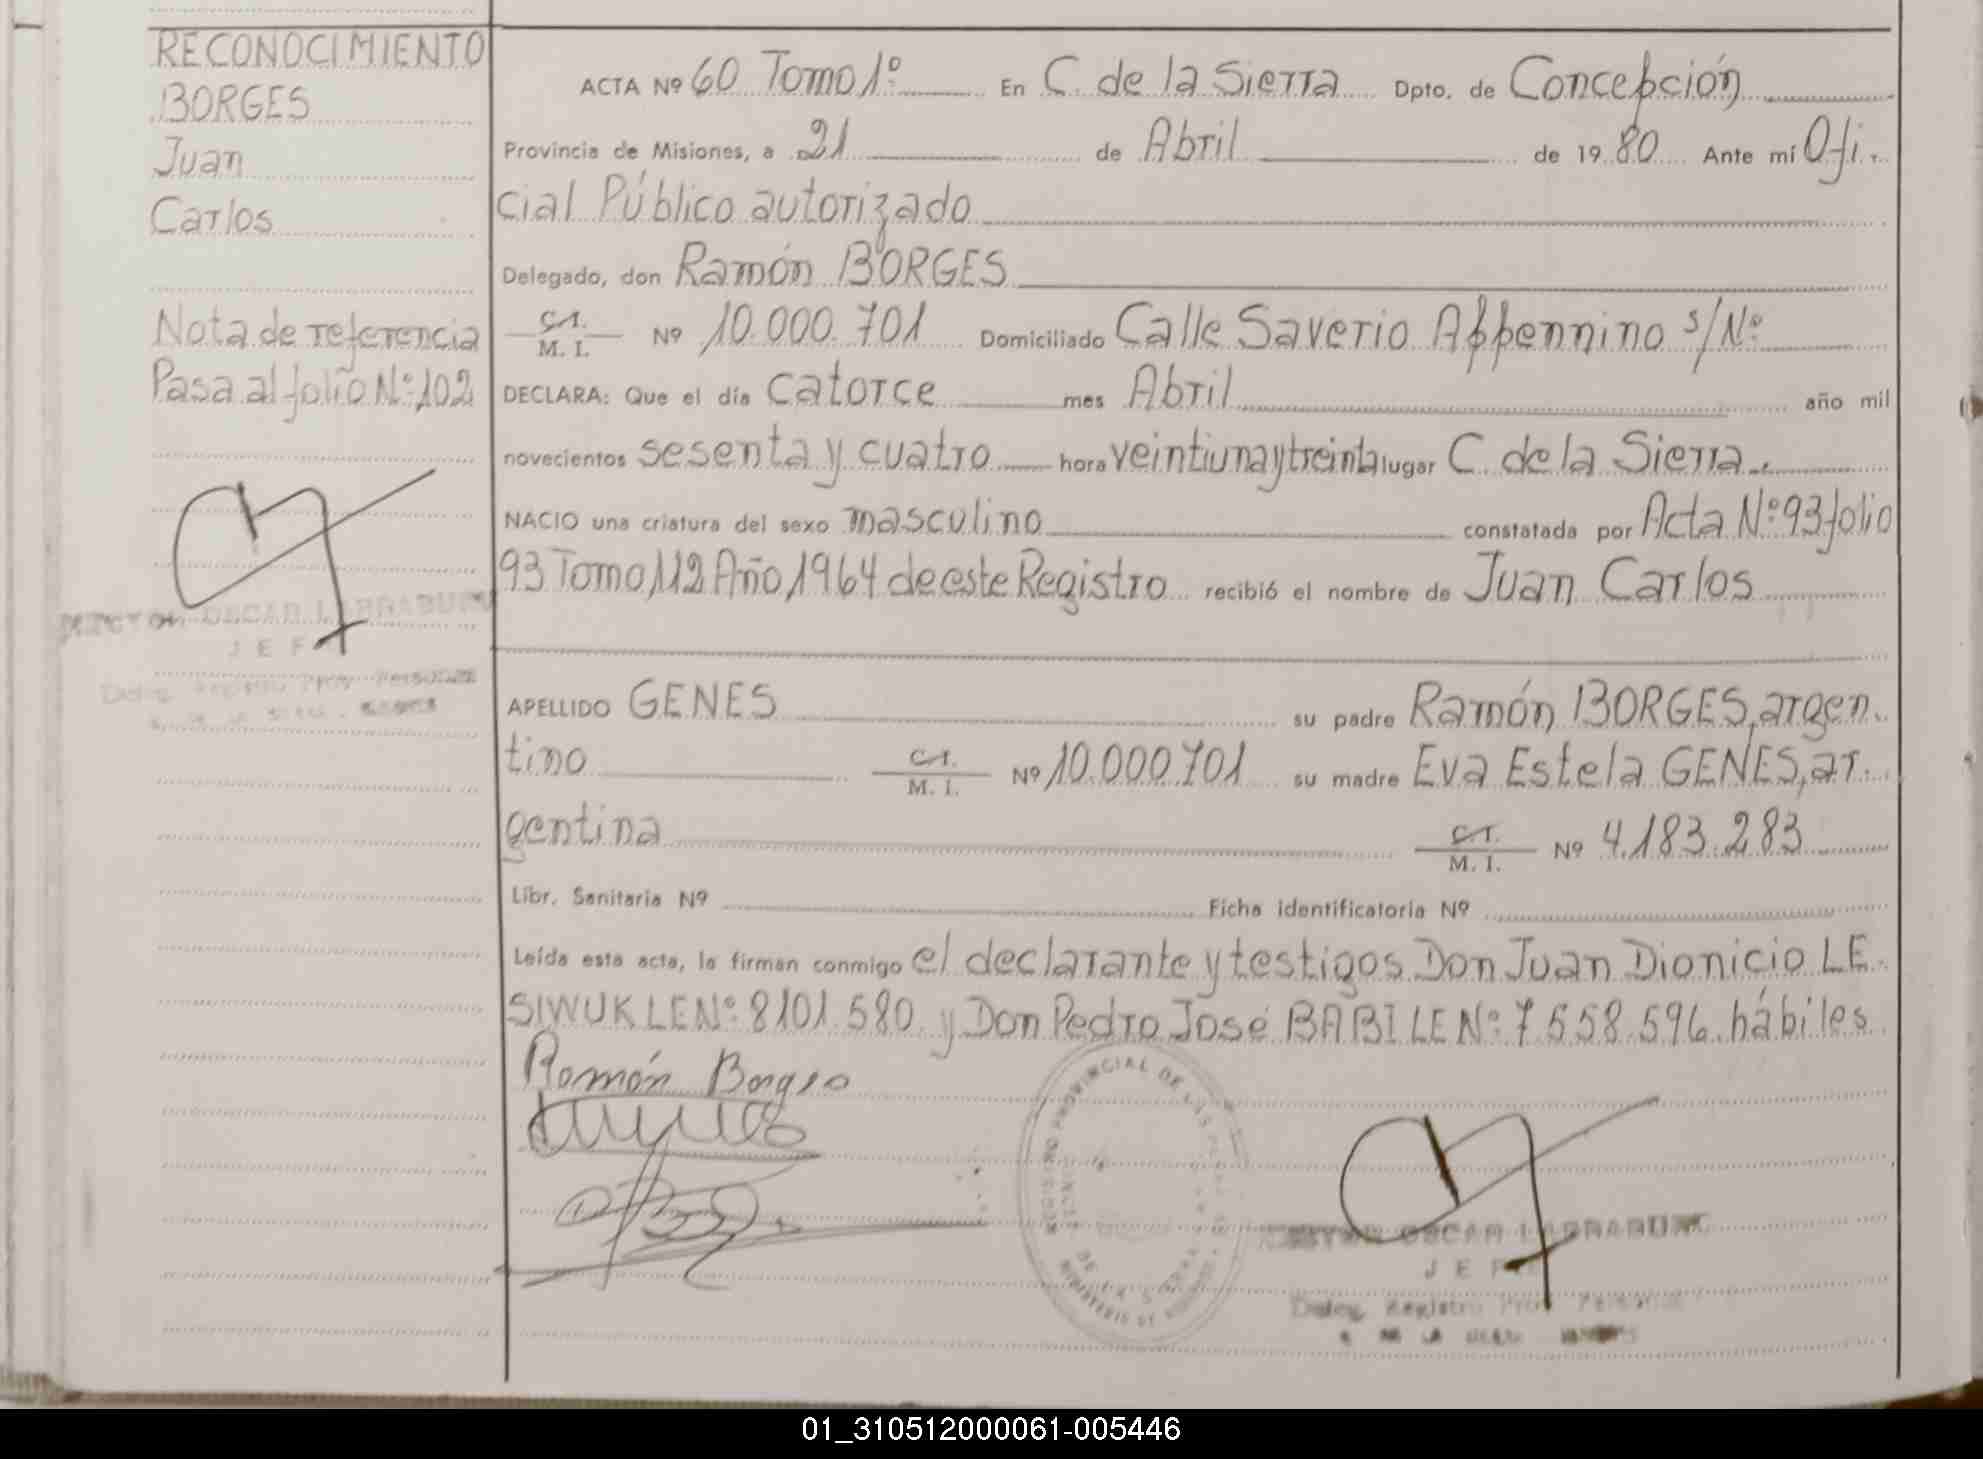 RECONOCIMIENTO
BORGES
Juan
Carlos
Nota de referencia
Pasa al folio Nº 102
OSCAR LARRABURU
JEF
Deleg. Registro Prov. Personas
ACTA Nº 60 Tomo 1º En C. de la Sierra Dpto. de Concepción
Provincia de Misiones, a 21 de Abril de 1980 Ante mí Ofi-
cial Público autorizado
Delegado, don Ramón BORGES
C.I.
M. I. Nº 10.000.701 Domiciliado Calle Saverio Appennino s/Nº
DECLARA: Que el día catorce mes Abril año mil
novecientos sesenta y cuatro hora veintiuna y treinta lugar C. de la Sierra.
NACIO una criatura del sexo masculino constatada por Acta Nº 93 folio
93 Tomo 112 Año 1964 de este Registro recibió el nombre de Juan Carlos
APELLIDO GENES su padre Ramón BORGES, argen-
tino C.I. M. I. Nº 10.000.701 su madre Eva Estela GENES, ar-
gentina C.I. M. I. Nº 4.183.283
Libr. Sanitaria Nº Ficha identificatoria Nº
Leída esta acta, la firman conmigo el declarante y testigos Don Juan Dionicio LE-
SIWUK LE Nº 8101.580 y Don Pedro José BABI LE Nº 7.558.596. hábiles
Ramón Borges
REGISTRO PROVINCIAL DE LAS
DE LA
MINISTERIO DE
OSCAR LARRABURU
JEF
Deleg. Registro Prov. Personas
DE LA
01_310512000061-005446